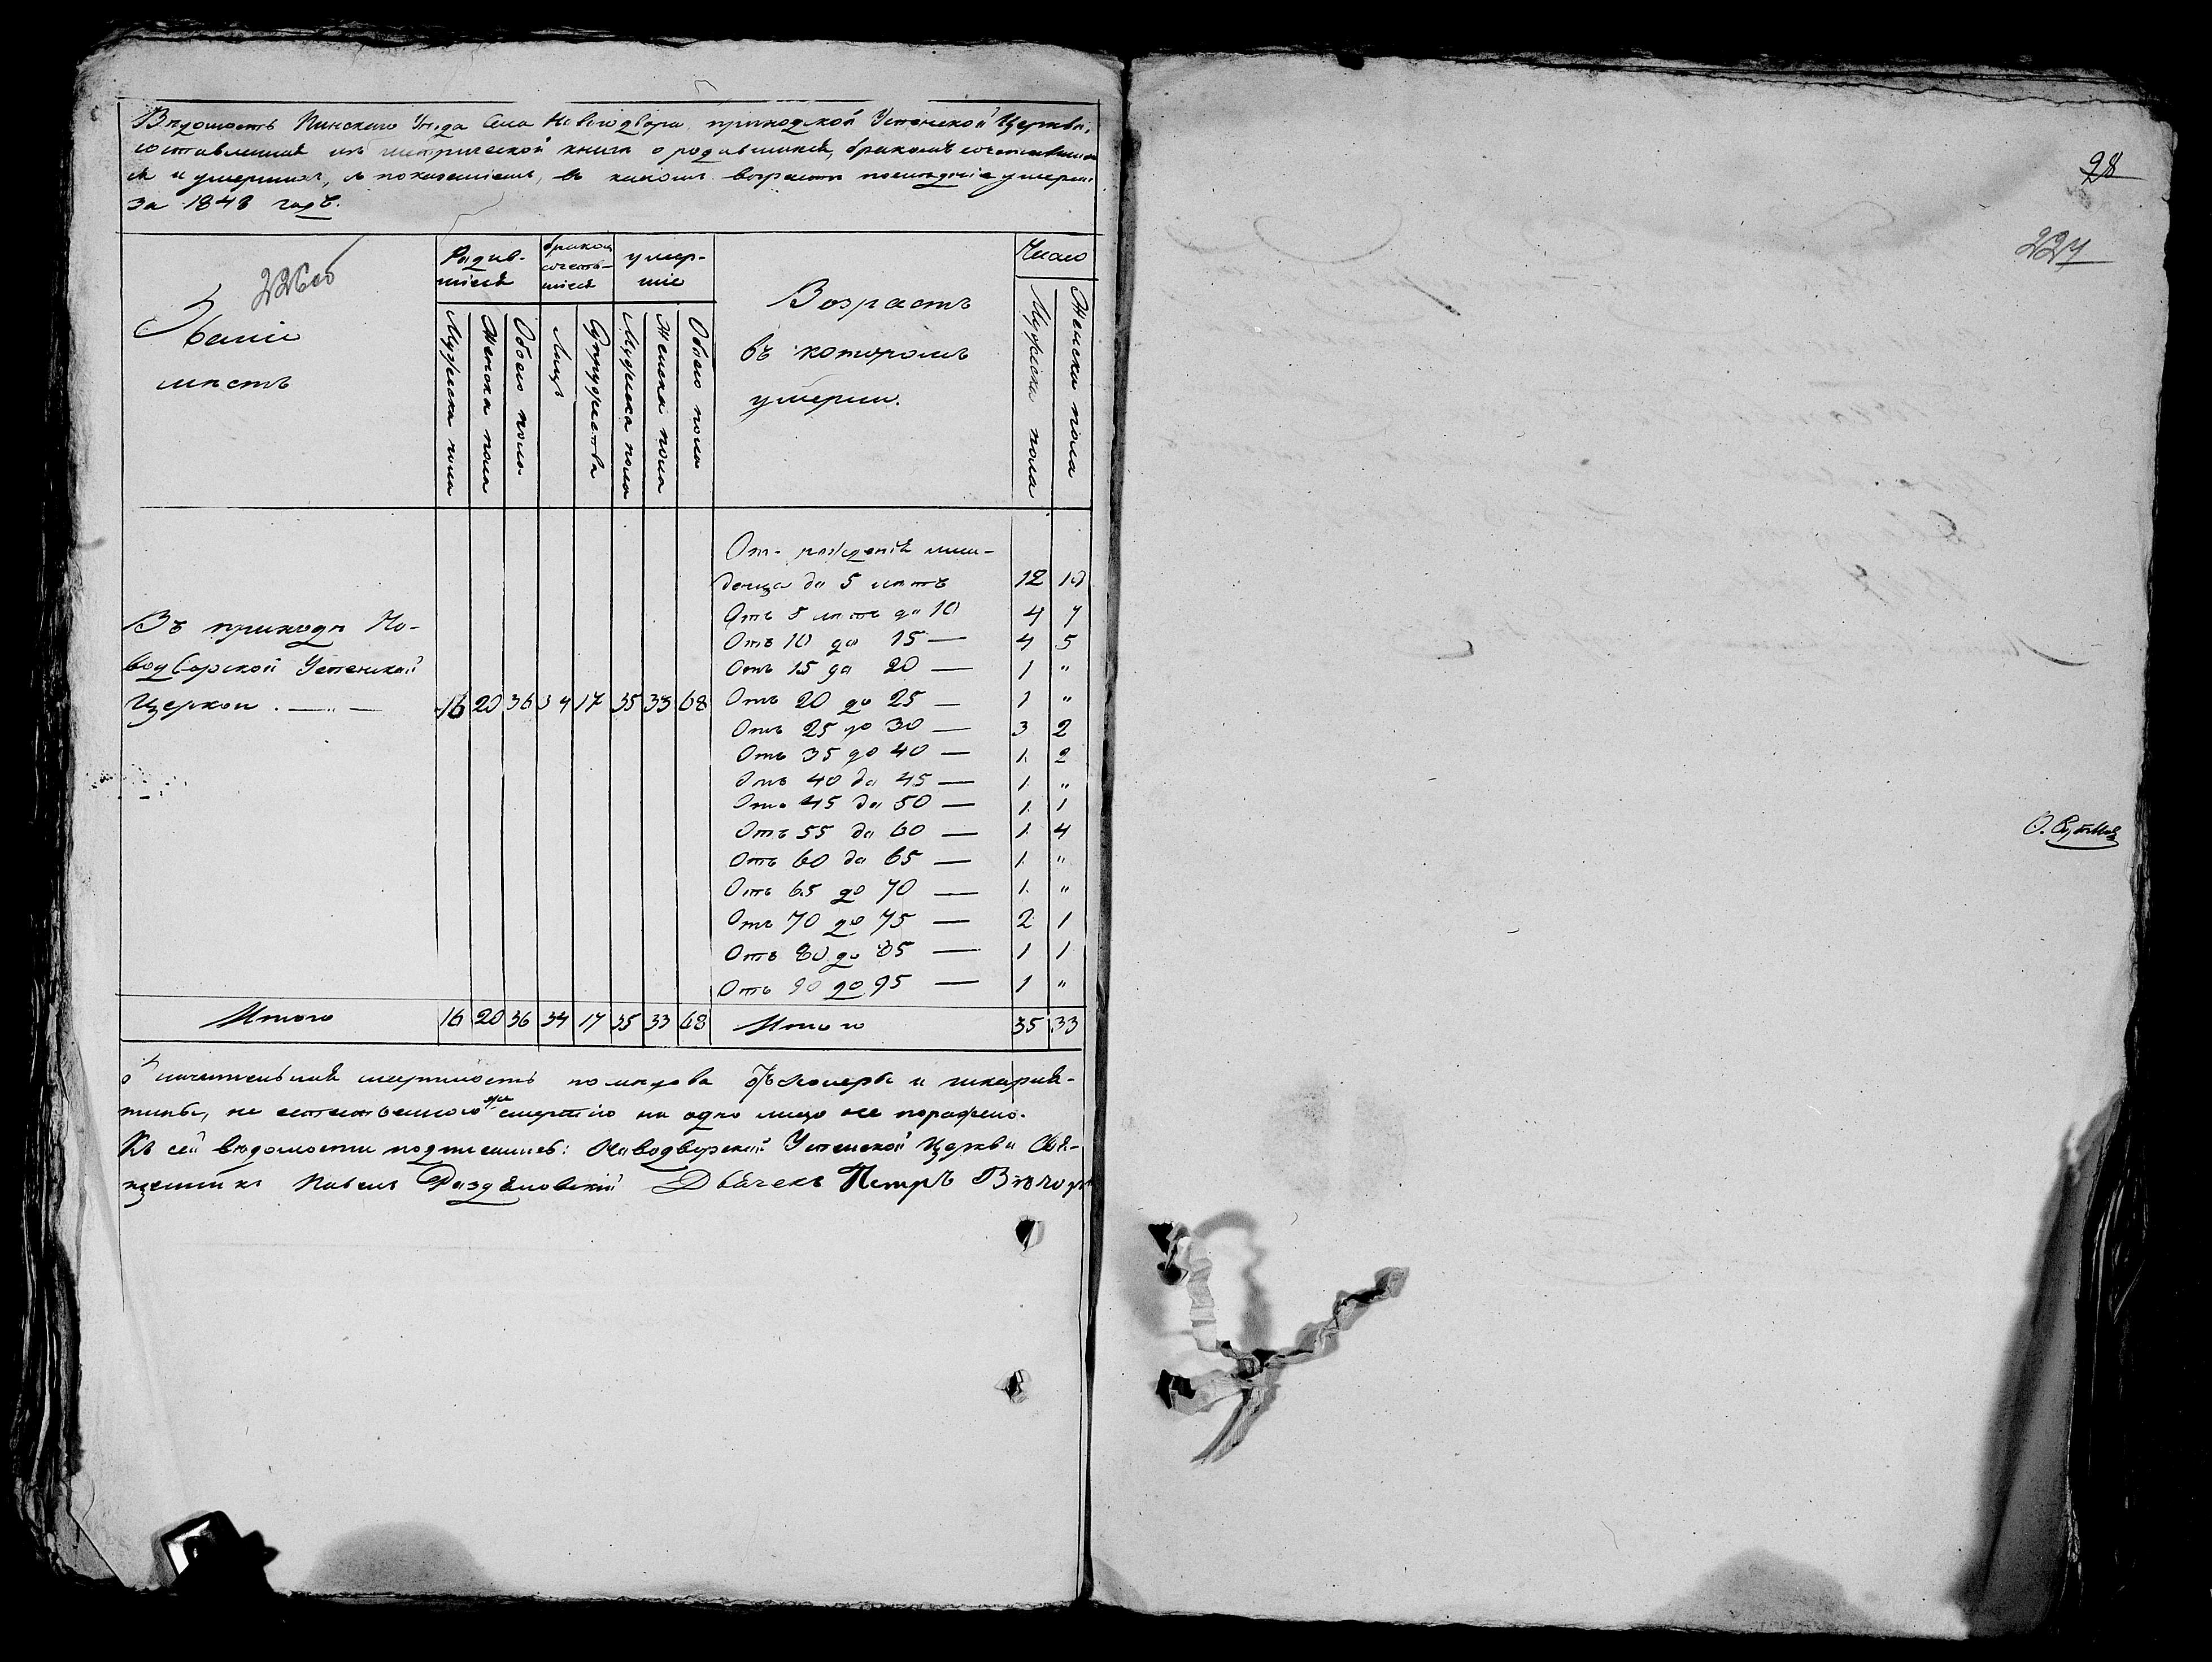 Вѣдомость Пинскаго Уѣзда Села Новагодвора, приходской Успенской Церкви,
составленная изъ метрической книги о родившихся, бракомъ сочетавших
ся и умершихъ, съ показаніемъ, въ какомъ возрастѣ последніе умерли
за 1848 годъ.
226об
Званіе
мѣстъ
Родив-
шіеся
бракомъ
сочетав-
шіеся
умер-
шіе
Возрастъ
въ которомъ
умерли.
Число
Мужеска пола
Женска пола
Обоего пола
Лицъ
Супружества
Мужеска пола
Женска пола
Обоего пола
Мужеска пола
Женска пола
Въ приходѣ Но-
водворской Успенской
Церкви . — „ — 16 20 36 34 17 35 33 68
От рожденія мла-
денца до 5 лѣтъ 12 10
Отъ 5 лѣтъ до 10 4 7
Отъ 10 до 15 — 4 5
Отъ 15 до 20 — 1 „
Отъ 20 до 25 — 1 „
Отъ 25 до 30 — 3 2
Отъ 35 до 40 — 1 2
Отъ 40 до 45 — 1 „
Отъ 45 до 50 — 1 1
Отъ 55 до 60 — 1 4
Отъ 60 до 65 — 1 „
Отъ 65 до 70 — 1 „
Отъ 70 до 75 — 2 1
Отъ 80 до 85 — 1 1
Отъ 90 до 95 — 1 „
Итого 16 20 36 34 17 35 33 68 Итого 35 33
Значительная смертность последова отъ холеры и шкарля-
тины, не естественного же смертію ни одно лицо не поражено.
Къ сей вѣдомости подписались: Новодворской Успенской Церкви Свя-
щенникъ Павелъ Дьячекъ Петръ
28
227